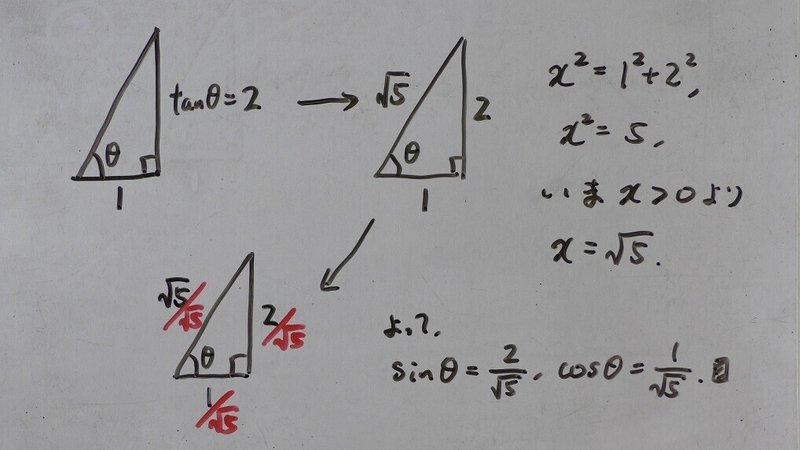 tanθ=2
θ
1
√5
2
θ
1
x²=1²+2²,
x²=5,
いま x>0 より
x=√5.
√5/√5
2/√5
θ
1/√5
よって,
sinθ=2/√5, cosθ=1/√5.